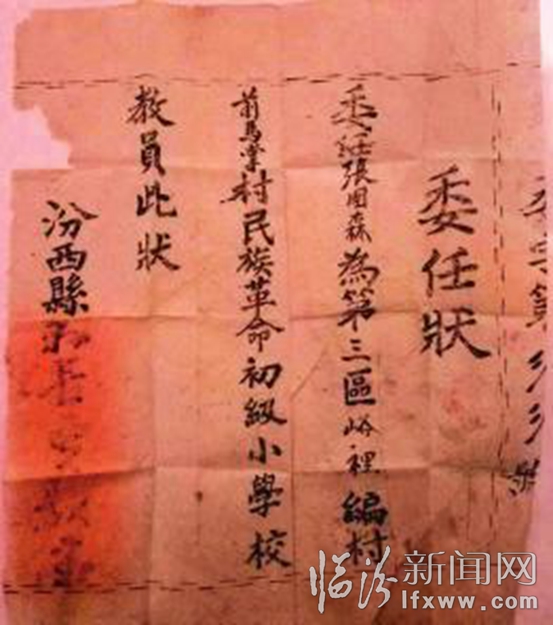 委字第 号
委任狀
委任張國森為第三區岭裡編村
前馬業村民族革命初級小學校
教員此狀
汾西縣
临汾新闻网
lfxww.com